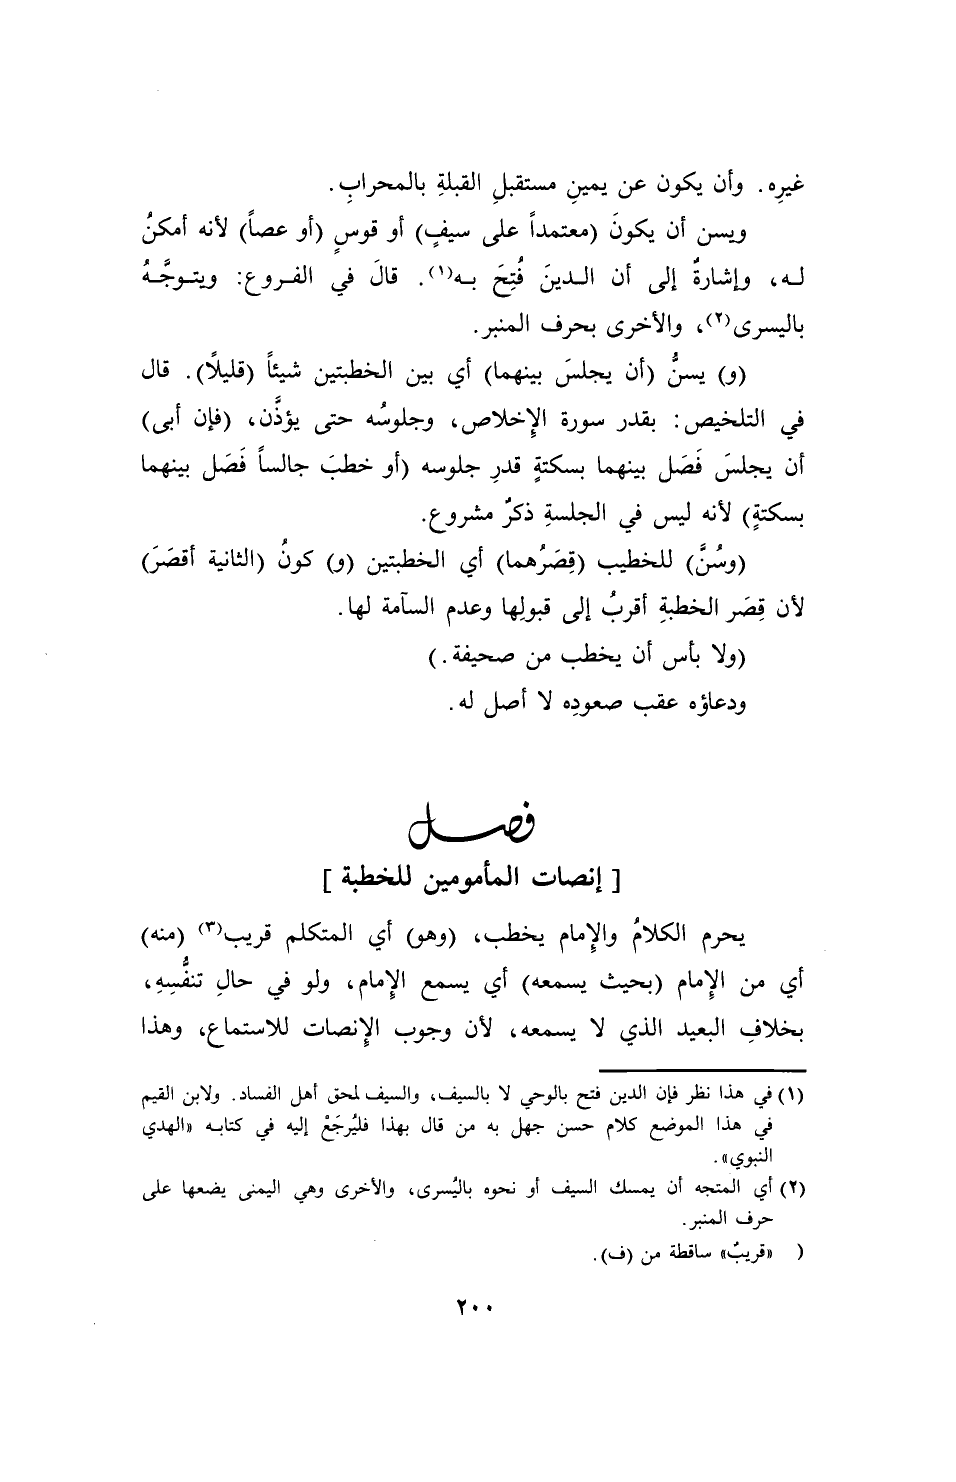 غيرِه. وأن يكون عن يمينِ مستقبلِ القبلةِ بالمحرابِ.
ويسن أن يكونَ (معتمداً على سيفٍ) أو قوسٍ (أو عصاً) لأنه أمكنُ
لـه، وإشارةٌ إلى أن الـدينَ فُتِحَ بـه(١). قالَ في الفـروع: ويتـوجَّـهُ
باليسرى(٢)، والأخرى بحرف المنبر.
(و) يسنُّ (أن يجلسَ بينهما) أي بين الخطبتين شيئاً (قليلًا). قال
في التلخيص: بقدر سورة الإِخلاص، وجلوسُه حتى يؤذَّن، (فإن أبى)
أن يجلسَ فَصَل بينهما بسكتةٍ قدرِ جلوسه (أو خطبَ جالساً فَصَل بينهما
بسكتةٍ) لأنه ليس في الجلسةِ ذكرٌ مشروع.
(وسُنَّ) للخطيب (قِصَرُهما) أي الخطبتين (و) كونُ (الثانية أقصَرَ)
لأن قِصَر الخطبةِ أقربُ إلى قبولِها وعدم السآمة لها.
(ولا بأس أن يخطب من صحيفة.)
ودعاؤه عقب صعودِه لا أصل له.
فصـل
[ إنصات المأمومين للخطبة ]
يحرم الكلامُ والإِمام يخطب، (وهو) أي المتكلم قريب(٣) (منه)
أي من الإِمام (بحيث يسمعه) أي يسمع الإِمام، ولو في حالِ تنفُّسِهِ،
بخلافِ البعيد الذي لا يسمعه، لأن وجوب الإِنصات للاستماع، وهذا
(١) في هذا نظر فإن الدين فتح بالوحي لا بالسيف، والسيف لمحق أهل الفساد. ولابن القيم
في هذا الموضع كلام حسن جهل به من قال بهذا فليُرجَعْ إليه في كتابـه «الهدي
النبوي».
(٢) أي المتجه أن يمسك السيف أو نحوه باليُسرى، والأخرى وهي اليمنى يضعها على
حرف المنبر.
( «قريبٌ» ساقطة من (ف).
٢٠٠